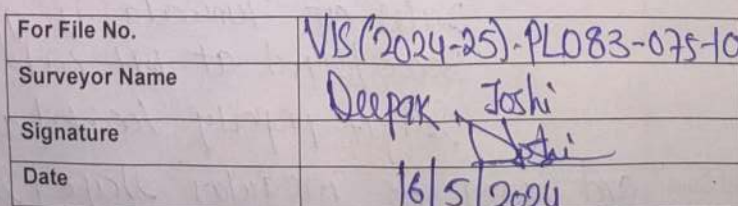 For File No. VIS(2024-25)-PL083-075-10
Surveyor Name Deepak Joshi
Signature Joshi
Date 16/5/2024